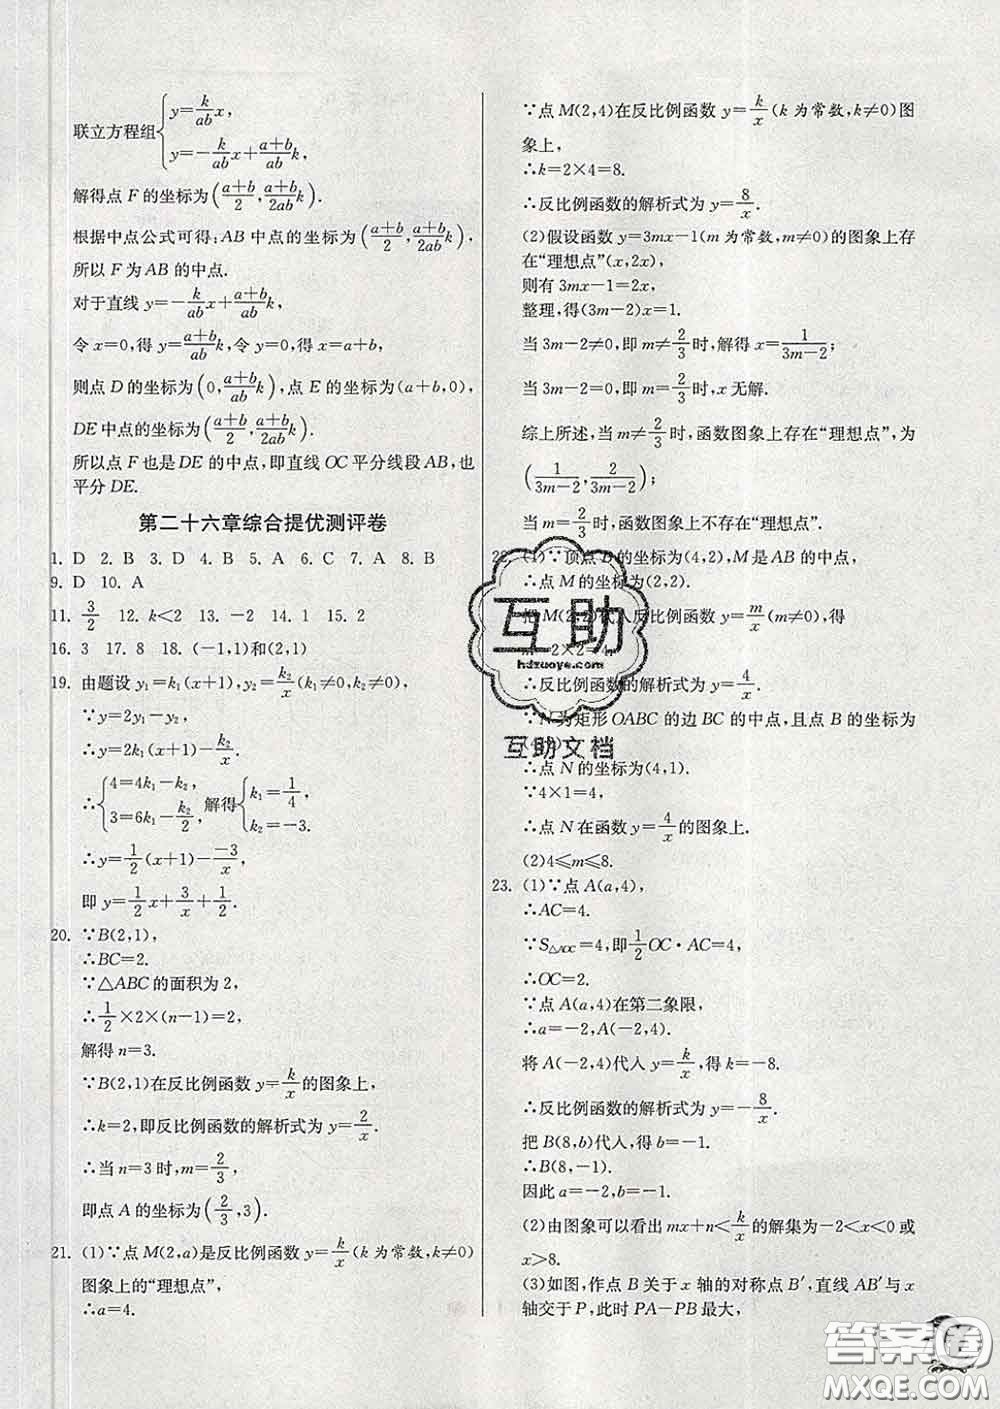 联立方程组{y=k/ab x,
y=-k/ab x+(a+b)/ab k,
解得点 F 的坐标为((a+b)/2, (a+b)/2ab k).
根据中点公式可得:AB 中点的坐标为((a+b)/2, (a+b)/2ab k),
所以 F 为 AB 的中点.
对于直线 y=-k/ab x+(a+b)/ab k,
令 x=0,得 y=(a+b)/ab k,令 y=0,得 x=a+b,
则点 D 的坐标为(0, (a+b)/ab k),点 E 的坐标为(a+b,0),
DE 中点的坐标为((a+b)/2, (a+b)/2ab k).
所以点 F 也是 DE 的中点,即直线 OC 平分线段 AB,也
平分 DE.
第二十六章综合提优测评卷
1. D 2. B 3. D 4. B 5. A 6. C 7. A 8. B
9. D 10. A
11. 3/2 12. k<2 13. -2 14. 1 15. 2
16. 3 17. 8 18. (-1,1)和(2,1)
19. 由题设 y₁=k₁(x+1),y₂=k₂/x(k₁≠0,k₂≠0),
∵y=2y₁-y₂,
∴y=2k₁(x+1)-k₂/x.
∴{4=4k₁-k₂, 3=6k₁-k₂/2, 解得{k₁=1/4, k₂=-3.
∴y=1/2(x+1)-(-3)/x.
即 y=1/2 x+3/x+1/2.
20. ∵B(2,1),
∴BC=2.
∵△ABC 的面积为 2,
∴1/2×2×(n-1)=2,
解得 n=3.
∵B(2,1)在反比例函数 y=k/x 的图象上,
∴k=2,即反比例函数的解析式为 y=2/x.
∴当 n=3 时,m=2/3,
即点 A 的坐标为(2/3,3).
21. (1)∵点 M(2,a)是反比例函数 y=k/x(k 为常数,k≠0)
图象上的“理想点”,
∴a=4.
∵点 M(2,4)在反比例函数 y=k/x(k 为常数,k≠0)图
象上,
∴k=2×4=8.
∴反比例函数的解析式为 y=8/x.
(2)假设函数 y=3mx-1(m 为常数,m≠0)的图象上存
在“理想点”(x,2x),
则有 3mx-1=2x,
整理,得(3m-2)x=1.
当 3m-2≠0,即 m≠2/3 时,解得 x=1/(3m-2);
当 3m-2=0,即 m=2/3 时,x 无解.
综上所述,当 m≠2/3 时,函数图象上存在“理想点”,为
(1/(3m-2), 2/(3m-2));
当 m=2/3 时,函数图象上不存在“理想点”.
22. (1)∵顶点 B 的坐标为(4,2),M 是 AB 的中点,
∴点 M 的坐标为(2,2).
把 M(2,2)代入反比例函数 y=m/x(m≠0),得
m=2×2=4.
∴反比例函数的解析式为 y=4/x.
∵N 为矩形 OABC 的边 BC 的中点,且点 B 的坐标为
(4,2),
∴点 N 的坐标为(4,1).
∵4×1=4,
∴点 N 在函数 y=4/x 的图象上.
(2)4≤m≤8.
23. (1)∵点 A(a,4),
∴AC=4.
∵S△AOC=4,即1/2 OC·AC=4,
∴OC=2.
∵点 A(a,4)在第二象限,
∴a=-2,A(-2,4).
将 A(-2,4)代入 y=k/x,得 k=-8.
∴反比例函数的解析式为 y=-8/x.
把 B(8,b)代入,得 b=-1.
∴B(8,-1).
因此 a=-2,b=-1.
(2)由图象可以看出 mx+n<k/x 的解集为-2<x<0 或
x>8.
(3)如图,作点 B 关于 x 轴的对称点 B′,直线 AB′与 x
轴交于 P,此时 PA-PB 最大,
互助
hdzuoye.com
互助文档
答案圈
MXQE.COM